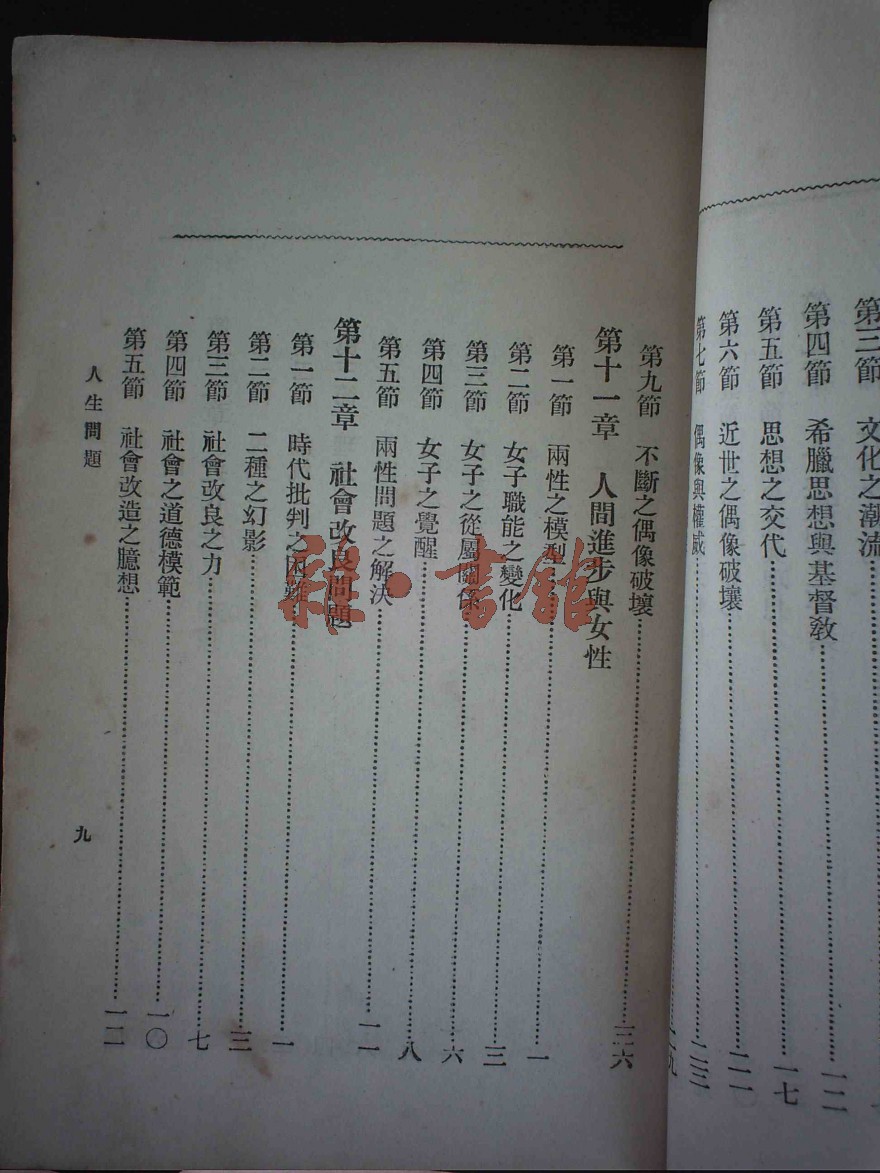 第三節 文化之潮流
第四節 希臘思想與基督教……一二
第五節 思想之交代……一七
第六節 近世之偶像破壞……二一
第七節 偶像與權威……二三
第九節 不斷之偶像破壞……三六
第十一章 人間進步與女性
第一節 兩性之模型……一
第二節 女子職能之變化……三
第三節 女子之從屬關係……六
第四節 女子之覺醒……八
第五節 兩性問題之解決……一一
第十二章 社會改良問題
第一節 時代批判之困難……一
第二節 二種之幻影……三
第三節 社會改良之力……七
第四節 社會之道德模範……一〇
第五節 社會改造之臆想……一二
人生問題
九
雜·書館